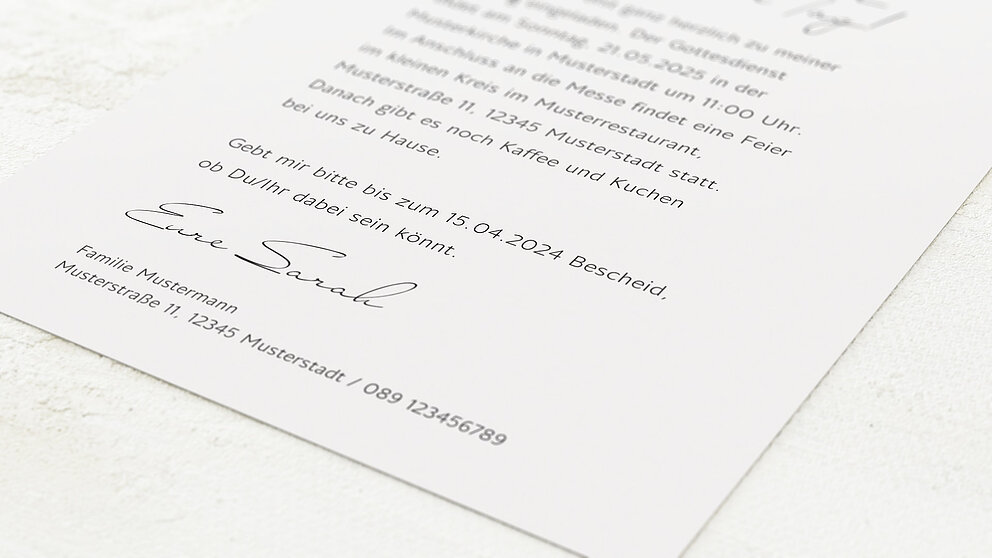 ganz herzlich zu meiner
eingeladen. Der Gottesdienst
am Sonntag, 21.05.2025 in der
Musterkirche in Musterstadt um 11:00 Uhr.
Im Anschluss an die Messe findet eine Feier
im kleinen Kreis im Musterrestaurant,
Musterstraße 11, 12345 Musterstadt statt.
Danach gibt es noch Kaffee und Kuchen
bei uns zu Hause.
Gebt mir bitte bis zum 15.04.2024 Bescheid,
ob Du/Ihr dabei sein könnt.
Eure Sarah
Familie Mustermann
Musterstraße 11, 12345 Musterstadt / 089 123456789